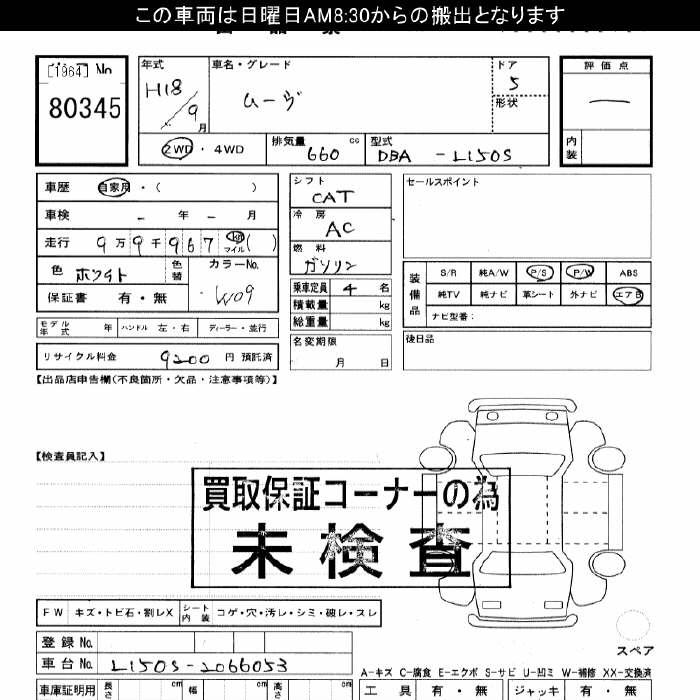 この車両は日曜日AM8:30からの搬出となります
[1964] No
80345
年式 車名・グレード ドア 評価点
H18/9月 ムーヴ 5 —
形状
2WD・4WD 排気量 660 cc 型式 DBA-L150S 内装
車歴 自家用・( )
車検 - 年 - 月
走行 9万9千967 km マイル ( )
色 ホワイト 色替 カラーNo. W09
保証書 有・無
モデル年式 年 ハンドル 左・右 ディーラー・並行
リサイクル料金 9200 円 預託済
シフト CAT
冷房 AC
燃料 ガソリン
乗車定員 4 名
積載量 kg
総重量 kg
名変期限
月 日
セールスポイント
装備品
S/R 純A/W P/S P/W ABS
純TV 純ナビ 革シート 外ナビ エアB
ナビ型番:
後日品
【出品店申告欄(不良箇所・欠品・注意事項等)】
【検査員記入】
買取保証コーナーの為
未検査
FW キズ・トビ石・割レX シート内装 コゲ・穴・汚レ・シミ・破レ・スレ
登録 No.
車台 No. L150S-2066053
スペア
A-キズ C-腐食 E-エクボ S-サビ U-凹ミ W-補修 XX-交換済
車庫証明用 長さ cm 幅 cm 高さ cm 工具 有・無 ジャッキ 有・無